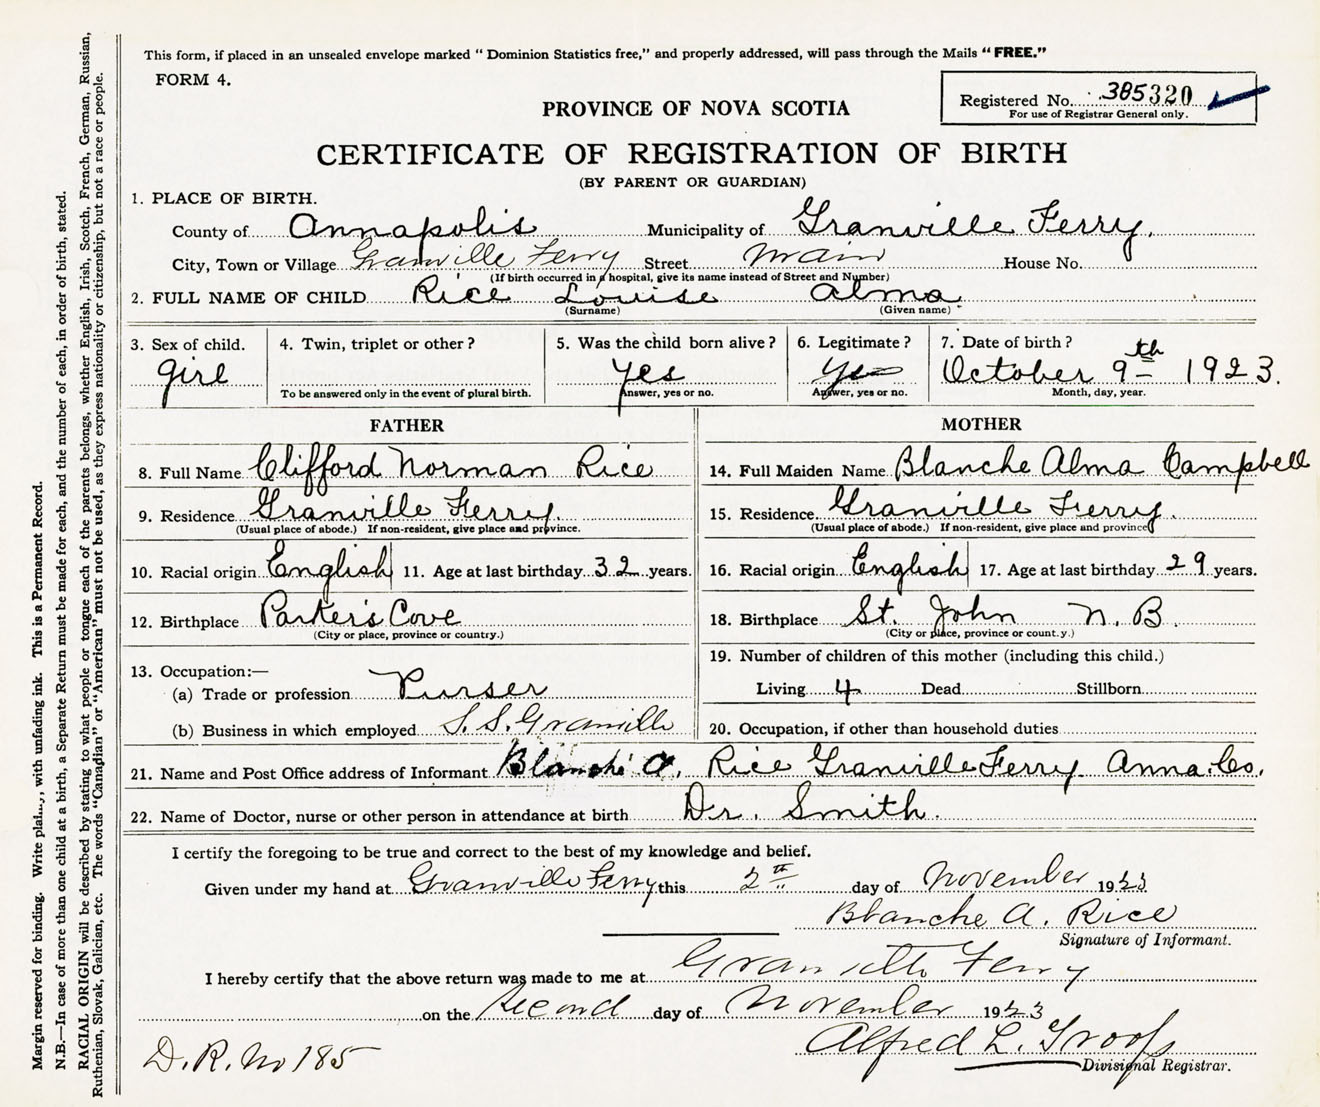 This form, if placed in an unsealed envelope marked “ Dominion Statistics free,” and properly addressed, will pass through the Mails “ FREE.”
FORM 4.
Registered No. 385320
For use of Registrar General only.
PROVINCE OF NOVA SCOTIA
CERTIFICATE OF REGISTRATION OF BIRTH
(BY PARENT OR GUARDIAN)
1. PLACE OF BIRTH.
County of Annapolis Municipality of Granville Ferry.
City, Town or Village Granville Ferry Street Main House No.
(If birth occurred in a hospital, give its name instead of Street and Number)
2. FULL NAME OF CHILD Rice Louise Alma
(Surname) (Given name)
3. Sex of child. 4. Twin, triplet or other ? 5. Was the child born alive ? 6. Legitimate ? 7. Date of birth ?
girl yes yes October 9th 1923.
To be answered only in the event of plural birth. Answer, yes or no. Answer, yes or no. Month, day, year.
FATHER MOTHER
8. Full Name Clifford Norman Rice 14. Full Maiden Name Blanche Alma Campbell
9. Residence Granville Ferry 15. Residence Granville Ferry.
(Usual place of abode.) If non-resident, give place and province. (Usual place of abode.) If non-resident, give place and province
10. Racial origin English 11. Age at last birthday 32 years. 16. Racial origin English 17. Age at last birthday 29 years.
12. Birthplace Parker's Cove 18. Birthplace St. John N. B.
(City or place, province or country.) (City or place, province or count.y.)
13. Occupation:— 19. Number of children of this mother (including this child.)
(a) Trade or profession Purser Living 4 Dead Stillborn
(b) Business in which employed S. S. Granville 20. Occupation, if other than household duties
21. Name and Post Office address of Informant Blanche A. Rice Granville Ferry Anna. Co.
22. Name of Doctor, nurse or other person in attendance at birth Dr. Smith.
I certify the foregoing to be true and correct to the best of my knowledge and belief.
Given under my hand at Granville Ferry this 2th day of November 1923
Blanche A. Rice
Signature of Informant.
I hereby certify that the above return was made to me at Granville Ferry
on the second day of November 1923
Alfred L.
D. R. No 185 Divisional Registrar.
Margin reserved for binding. Write with unfading ink. This is a Permanent Record.
N.B.—In case of more than one child at a birth, a Separate Return must be made for each, and the number of each, in order of birth, stated.
RACIAL ORIGIN will be described by stating to what people or tongue each of the parents belongs, whether English, Irish, Scotch, French, German, Russian,
Ruthenian, Slovak, Galician, etc. The words “Canadian” or “American” must not be used, as they express nationality or citizenship, but not a race or people.